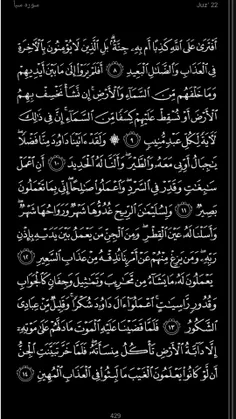 سورة سبأ Juz' 22
أَفْتَرَىٰ عَلَى ٱللَّهِ كَذِبًا أَم بِهِۦ جِنَّةٌۢ ۗ بَلِ ٱلَّذِينَ لَا يُؤْمِنُونَ بِٱلْـَٔاخِرَةِ
فِى ٱلْعَذَابِ وَٱلضَّلَٰلِ ٱلْبَعِيدِ ٨ أَفَلَمْ يَرَوْا۟ إِلَىٰ مَا بَيْنَ أَيْدِيهِمْ
وَمَا خَلْفَهُم مِّنَ ٱلسَّمَآءِ وَٱلْأَرْضِ ۚ إِن نَّشَأْ نَخْسِفْ بِهِمُ
ٱلْأَرْضَ أَوْ نُسْقِطْ عَلَيْهِمْ كِسَفًا مِّنَ ٱلسَّمَآءِ ۚ إِنَّ فِى ذَٰلِكَ
لَـَٔايَةً لِّكُلِّ عَبْدٍ مُّنِيبٍ ٩ ۞ وَلَقَدْ ءَاتَيْنَا دَاوُۥدَ مِنَّا فَضْلًا ۖ
يَٰجِبَالُ أَوِّبِى مَعَهُۥ وَٱلطَّيْرَ ۖ وَأَلَنَّا لَهُ ٱلْحَدِيدَ ١٠ أَنِ ٱعْمَلْ
سَٰبِغَٰتٍ وَقَدِّرْ فِى ٱلسَّرْدِ ۖ وَٱعْمَلُوا۟ صَٰلِحًا ۖ إِنِّى بِمَا تَعْمَلُونَ
بَصِيرٌ ١١ وَلِسُلَيْمَٰنَ ٱلرِّيحَ غُدُوُّهَا شَهْرٌ وَرَوَاحُهَا شَهْرٌ ۖ
وَأَسَلْنَا لَهُۥ عَيْنَ ٱلْقِطْرِ ۖ وَمِنَ ٱلْجِنِّ مَن يَعْمَلُ بَيْنَ يَدَيْهِ بِإِذْنِ
رَبِّهِۦ ۖ وَمَن يَزِغْ مِنْهُمْ عَنْ أَمْرِنَا نُذِقْهُ مِنْ عَذَابِ ٱلسَّعِيرِ ١٢
يَعْمَلُونَ لَهُۥ مَا يَشَآءُ مِن مَّحَٰرِيبَ وَتَمَٰثِيلَ وَجِفَانٍ كَٱلْجَوَابِ
وَقُدُورٍ رَّاسِيَٰتٍ ۚ ٱعْمَلُوٓا۟ ءَالَ دَاوُۥدَ شُكْرًا ۚ وَقَلِيلٌ مِّنْ عِبَادِىَ
ٱلشَّكُورُ ١٣ فَلَمَّا قَضَيْنَا عَلَيْهِ ٱلْمَوْتَ مَا دَلَّهُمْ عَلَىٰ مَوْتِهِۦٓ
إِلَّا دَآبَّةُ ٱلْأَرْضِ تَأْكُلُ مِنسَأَتَهُۥ ۖ فَلَمَّا خَرَّ تَبَيَّنَتِ ٱلْجِنُّ
أَن لَّوْ كَانُوا۟ يَعْلَمُونَ ٱلْغَيْبَ مَا لَبِثُوا۟ فِى ٱلْعَذَابِ ٱلْمُهِينِ ١٤
429